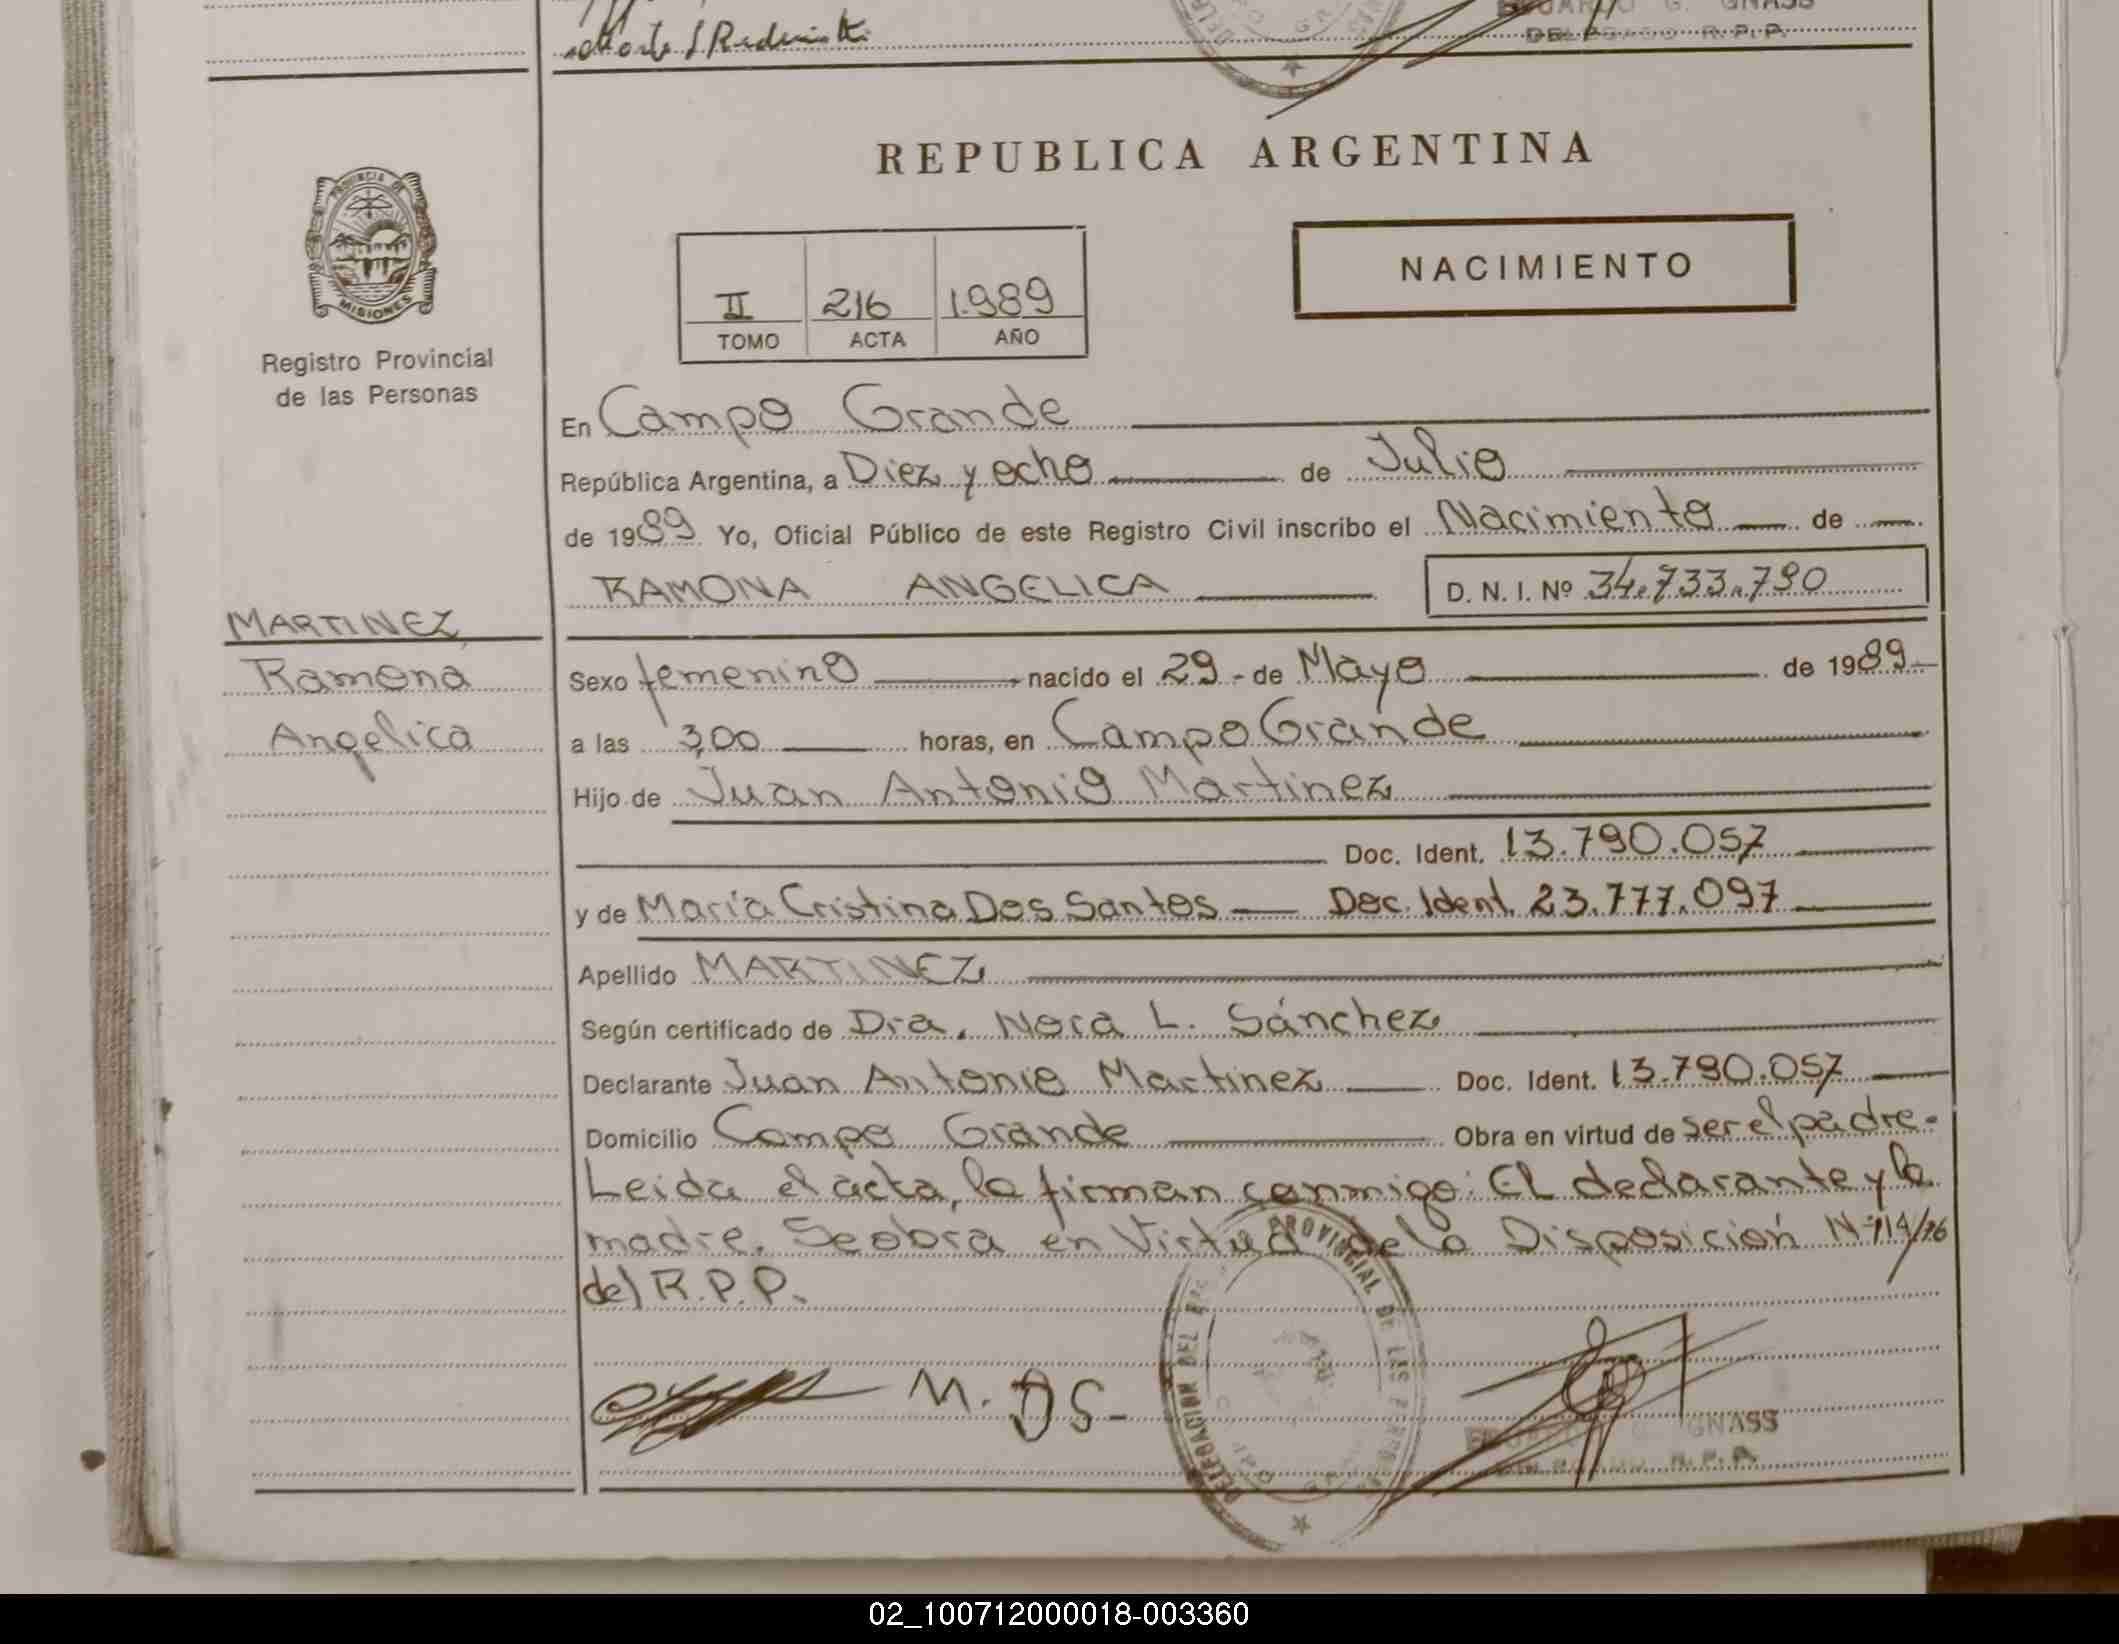 EDUARDO G. GNASS
DELEGADO R.P.P.
REPUBLICA ARGENTINA
PROVINCIA DE
MISIONES
Registro Provincial
de las Personas
II 216 1.989
TOMO ACTA AÑO
NACIMIENTO
En Campo Grande
República Argentina, a Diez y ocho de Julio
de 1989 Yo, Oficial Público de este Registro Civil inscribo el Nacimiento de
RAMONA ANGELICA D. N. I. Nº 34.733.790
MARTINEZ
Ramona
Angelica
Sexo femenino nacido el 29 - de Mayo de 1989
a las 3,00 horas, en Campo Grande
Hijo de Juan Antonio Martinez
Doc. Ident. 13.790.057
y de María Cristina Dos Santos Doc. Ident. 23.777.097
Apellido MARTINEZ
Según certificado de Dra. Nora L. Sánchez
Declarante Juan Antonio Martinez Doc. Ident. 13.790.057
Domicilio Campo Grande Obra en virtud de ser el padre.
Leida el acta, la firman conmigo: El declarante y la
madre. Se obra en Virtud de la Disposición Nº 114/76
del R.P.P.
M. DS-
DELEGACION DEL PROVINCIAL DE LAS
GNASS
R.P.P.
02_100712000018-003360